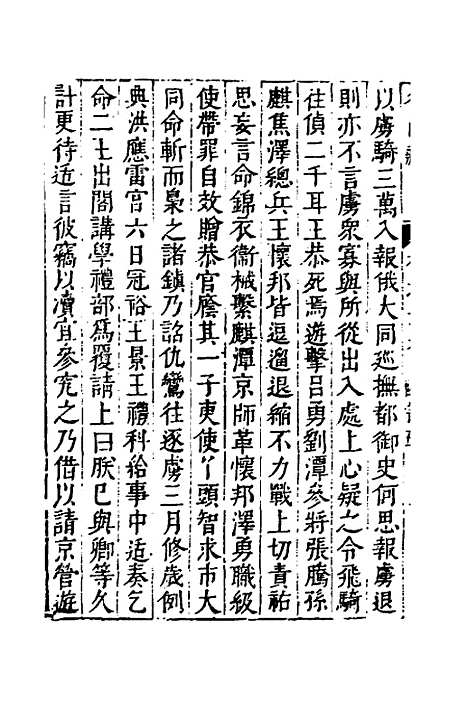 以虜騎三萬入報俄大同廵撫都御史何思報虜退
則亦不言虜衆寡與所從出入處上心疑之令飛騎
往偵二千耳王恭死焉遊擊呂勇劉潭參將張騰孫
麒焦澤總兵王懷邦皆逗遛退縮不力戰上切責祐
思妄言命錦衣衞械繫麒潭京師革懷邦澤勇職級
使帶罪自效贈恭官廕其一子吏使丫頭智求市大
同命斬而梟之諸鎮乃詔仇鸞往逐虜三月修歲例
典洪應雷宫六日冠裕王景王禮科給事中适奏乞
命二王出閣講學禮部爲覆請上曰朕已與卿等久
計更待近言彼竊以凟宜參究之乃借以請京管遊